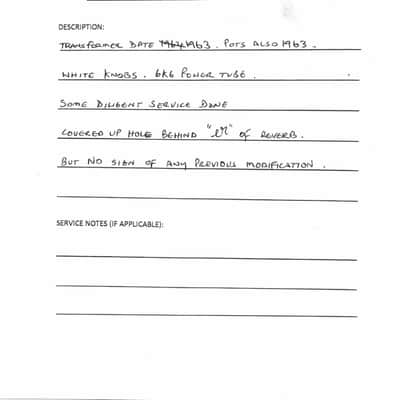 DESCRIPTION:
TRANSFORMER DATE 1963. POTS ALSO 1963.
WHITE KNOBS. 6K6 POWER TUBE.
SOME DILIGENT SERVICE DONE
COVERED UP HOLE BEHIND "er" OF REVERB.
BUT NO SIGN OF ANY PREVIOUS MODIFICATION.
SERVICE NOTES (IF APPLICABLE):